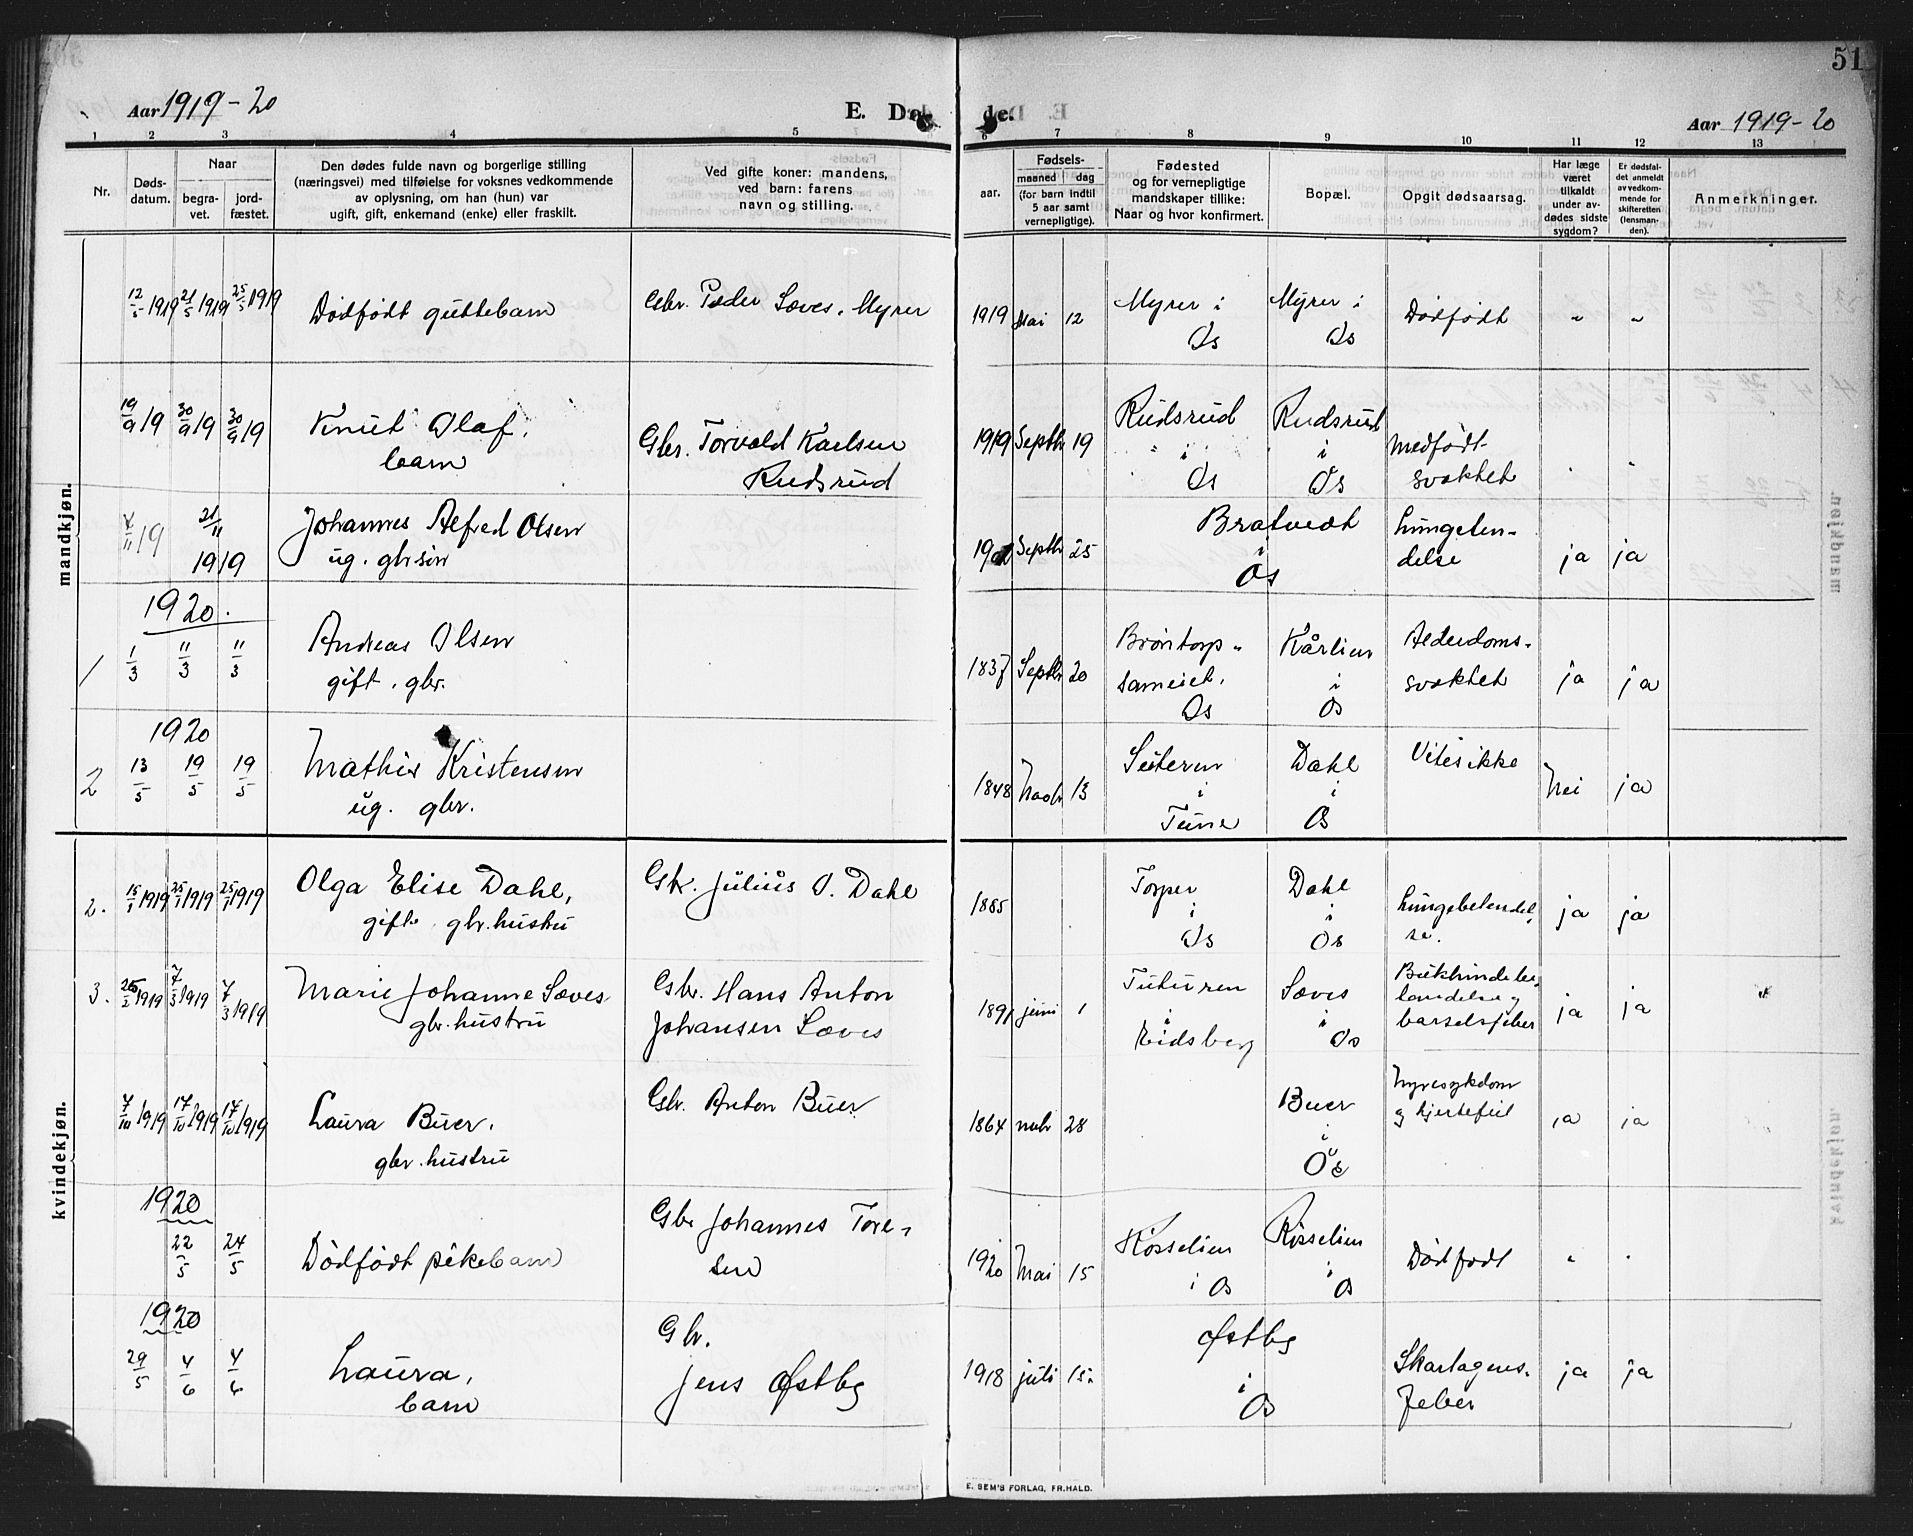 51
Aar 1919-20 E. Dø de. Aar 1919-20
1 2 3 4 5 6 7 8 9 10 11 12 13
Nr.
Døds-
datum.
Naar
begra-
vet.
jord-
fæstet.
Den dødes fulde navn og borgerlige stilling
(næringsvei) med tilføielse for voksnes vedkommende
av oplysning, om han (hun) var
ugift, gift, enkemand (enke) eller fraskilt.
Ved gifte koner: mandens,
ved barn: farens
navn og stilling.
aar.
Fødsels-
maaned dag
(for barn indtil
5 aar samt
vernepligtige).
Fødested
og for vernepligtige
mandskaper tillike:
Naar og hvor konfirmert.
Bopæl.
Opgit dødsaarsag.
Har læge
været
tilkaldt
under av-
dødes sidste
sygdom?
Er dødsfal-
det anmeldt
av vedkom-
mende for
skifteretten
(lensman-
den).
Anmerkninger.
mandkjøn.
12/5 1919 21/5 1919 25/5 1919
Dødfødt guttebarn
Gbr. Peder Sæves, Myrer
1919 Mai 12
Myrer i
Os
Myrer i
Os
Dødfødt
" "
19/9 19 30/9 19 30/9 19
Knut Olaf,
barn
Gbr. Torvald Karlsen
Rudsrud
1919 Septbr 19
Rudsrud
i
Os
Rudsrud
i
Os
medfødt
svakhet
7/11 19 21/11
1919
Johannes Alfred Olsen
ug. gbr. søn
Septbr 25
Bratvedt
i
Os
Lungeten-
delse
ja ja
1920.
1 1/3 11/3 11/3
Andreas Olsen
gift, gbr.
1837 Septbr 20
Brøntorp-
sameiet,
Os
Kårlien
i
Os
Alderdoms-
svakhet
ja ja
1920
2 13/5 19/5 19/5
Mathis Kristensen
ug. gbr.
1848 13
i
Tune
Dahl
i
Os
Vites ikke
Nei ja
kvindekjøn.
2. 15/1 1919 25/1 1919 25/1 1919
Olga Elise Dahl,
gift gbr. hustru
Gbr. Julius O. Dahl
1885
Torper
i
Os
Dahl
i
Os
Lungebetendel-
se.
ja ja
3. 26/2 1919 7/3 1919 7/3 1919
Marie Johanne Sæves
gbr. hustru
Gbr. Hans Anton
Johansen Sæves
1891 juni 1
i
Eidsberg
Sæves
i
Os
Bukhindebe-
tændelse og
barselsfeber
ja ja
7/10 1919 17/10 1919 17/10 1919
Laura Buer,
gbr. hustru
Gbr. Anton Buer
1864 novbr 28
Buer
i
Os
Nyresykdom
og hjertefeil
ja ja
1920
22/5 24/5
Dødfødt pikebarn
Gbr Johannes Tore-
sen
1920 Mai 15
Kosselien
i Os
Kosselien
i
Os
Dødfødt
"
1920
29/5 4/6 4/6
Laura,
barn
Gbr.
Jens Østby
1918 juli 15.
Østby
i
Os
Skarlagens-
feber
ja ja
E. SEM'S FORLAG, FR.HALD.